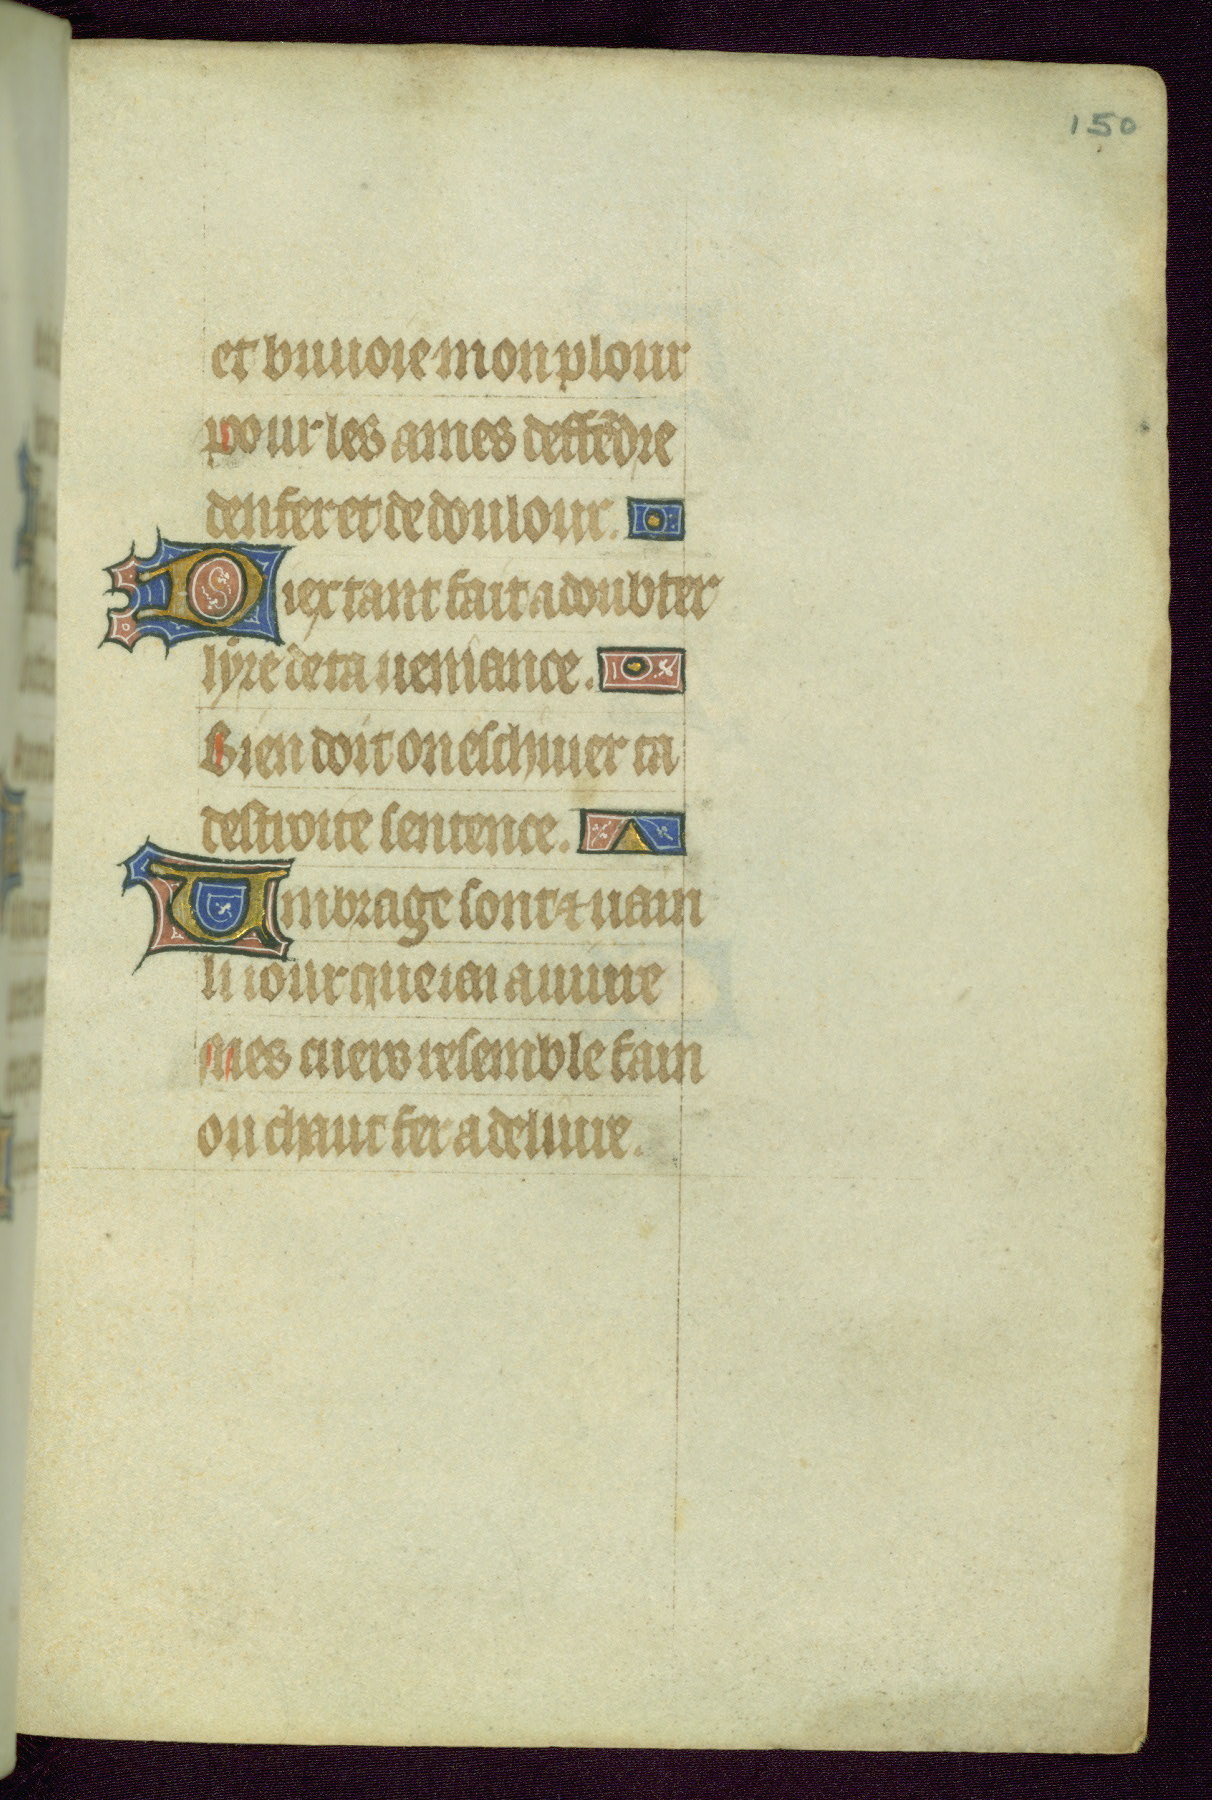 150
et buuoie mon plour
pour les ames deffēdre
denfer et de doulour.
Diex tant fait a doubter
lyre de ta veniance.
Bien doit on eschiuer ta
destroite sentence.
Vmbrage sont ⁊ uain
li iour que iai a uiure
mes cuers resemble fain
ou chaut fer a deliure.